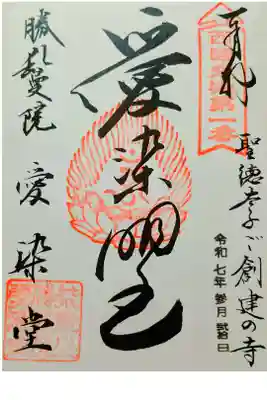 奉拝
聖徳太子ご創建の寺
令和七年参月弐拾日
愛染明王
勝鬘院
愛染堂